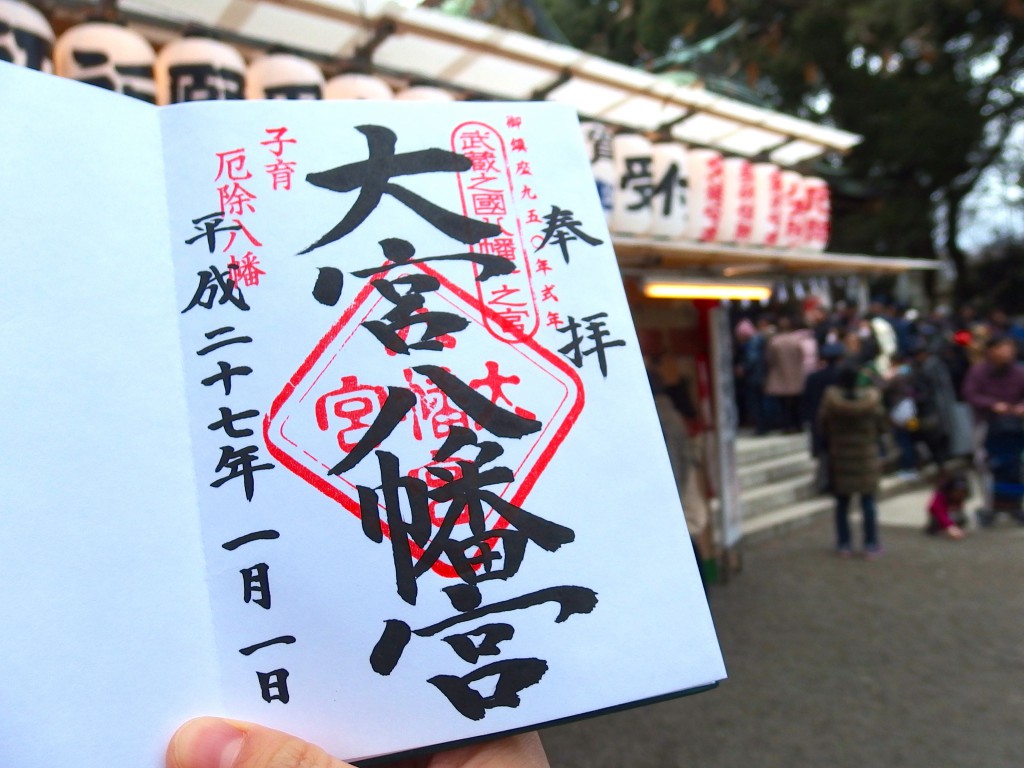 奉拝
御鎮座九五〇年式年
武蔵之國八幡一之宮
大宮八幡宮
大宮八幡宮
子育
厄除八幡
平成二十七年一月一日
受付